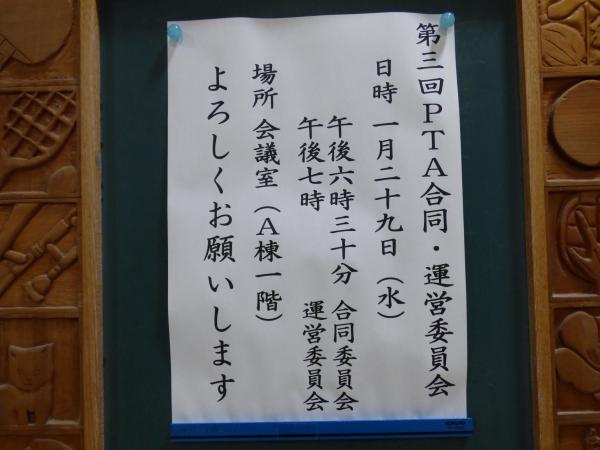 第三回PTA合同・運営委員会
日時 一月二十九日（水）
午後六時三十分 合同委員会
午後七時 運営委員会
場所 会議室（A棟一階）
よろしくお願いします